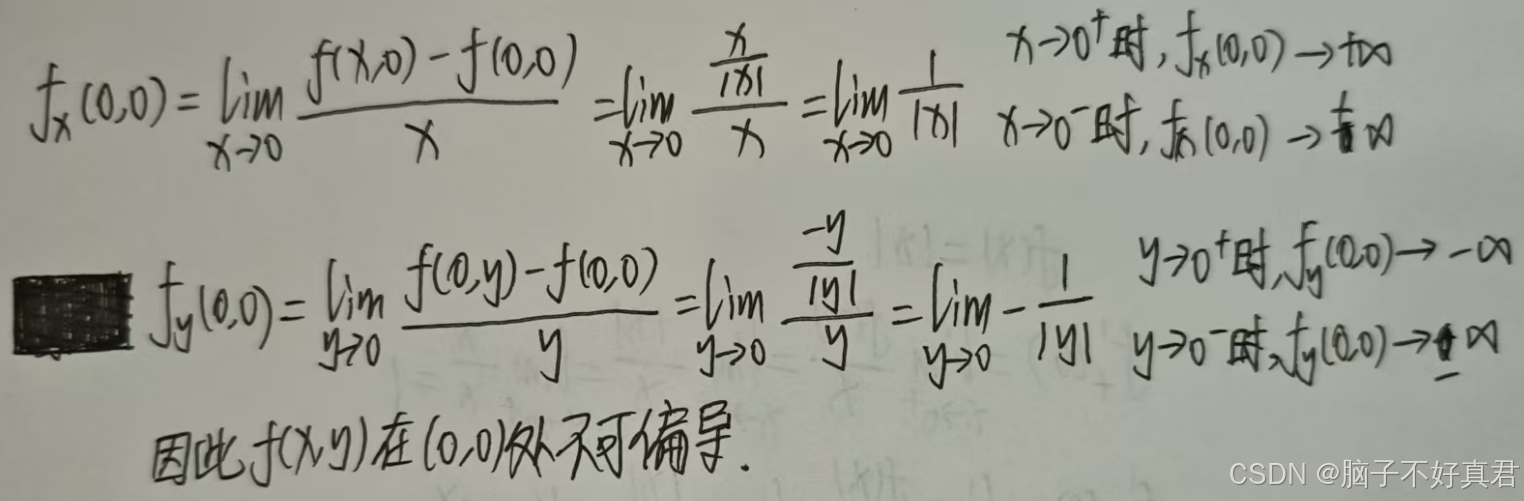 f_x(0,0) = lim_{x→0} \frac{f(x,0) - f(0,0)}{x} = lim_{x→0} \frac{\frac{x}{|x|}}{x} = lim_{x→0} \frac{1}{|x|} x→0⁺时, f_x(0,0) → +∞
x→0⁻时, f_x(0,0) → +∞
f_y(0,0) = lim_{y→0} \frac{f(0,y) - f(0,0)}{y} = lim_{y→0} \frac{\frac{-y}{|y|}}{y} = lim_{y→0} - \frac{1}{|y|} y→0⁺时, f_y(0,0) → -∞
y→0⁻时, f_y(0,0) → -∞
因此 f(x,y) 在 (0,0) 处不可偏导.
CSDN @脑子不好真君